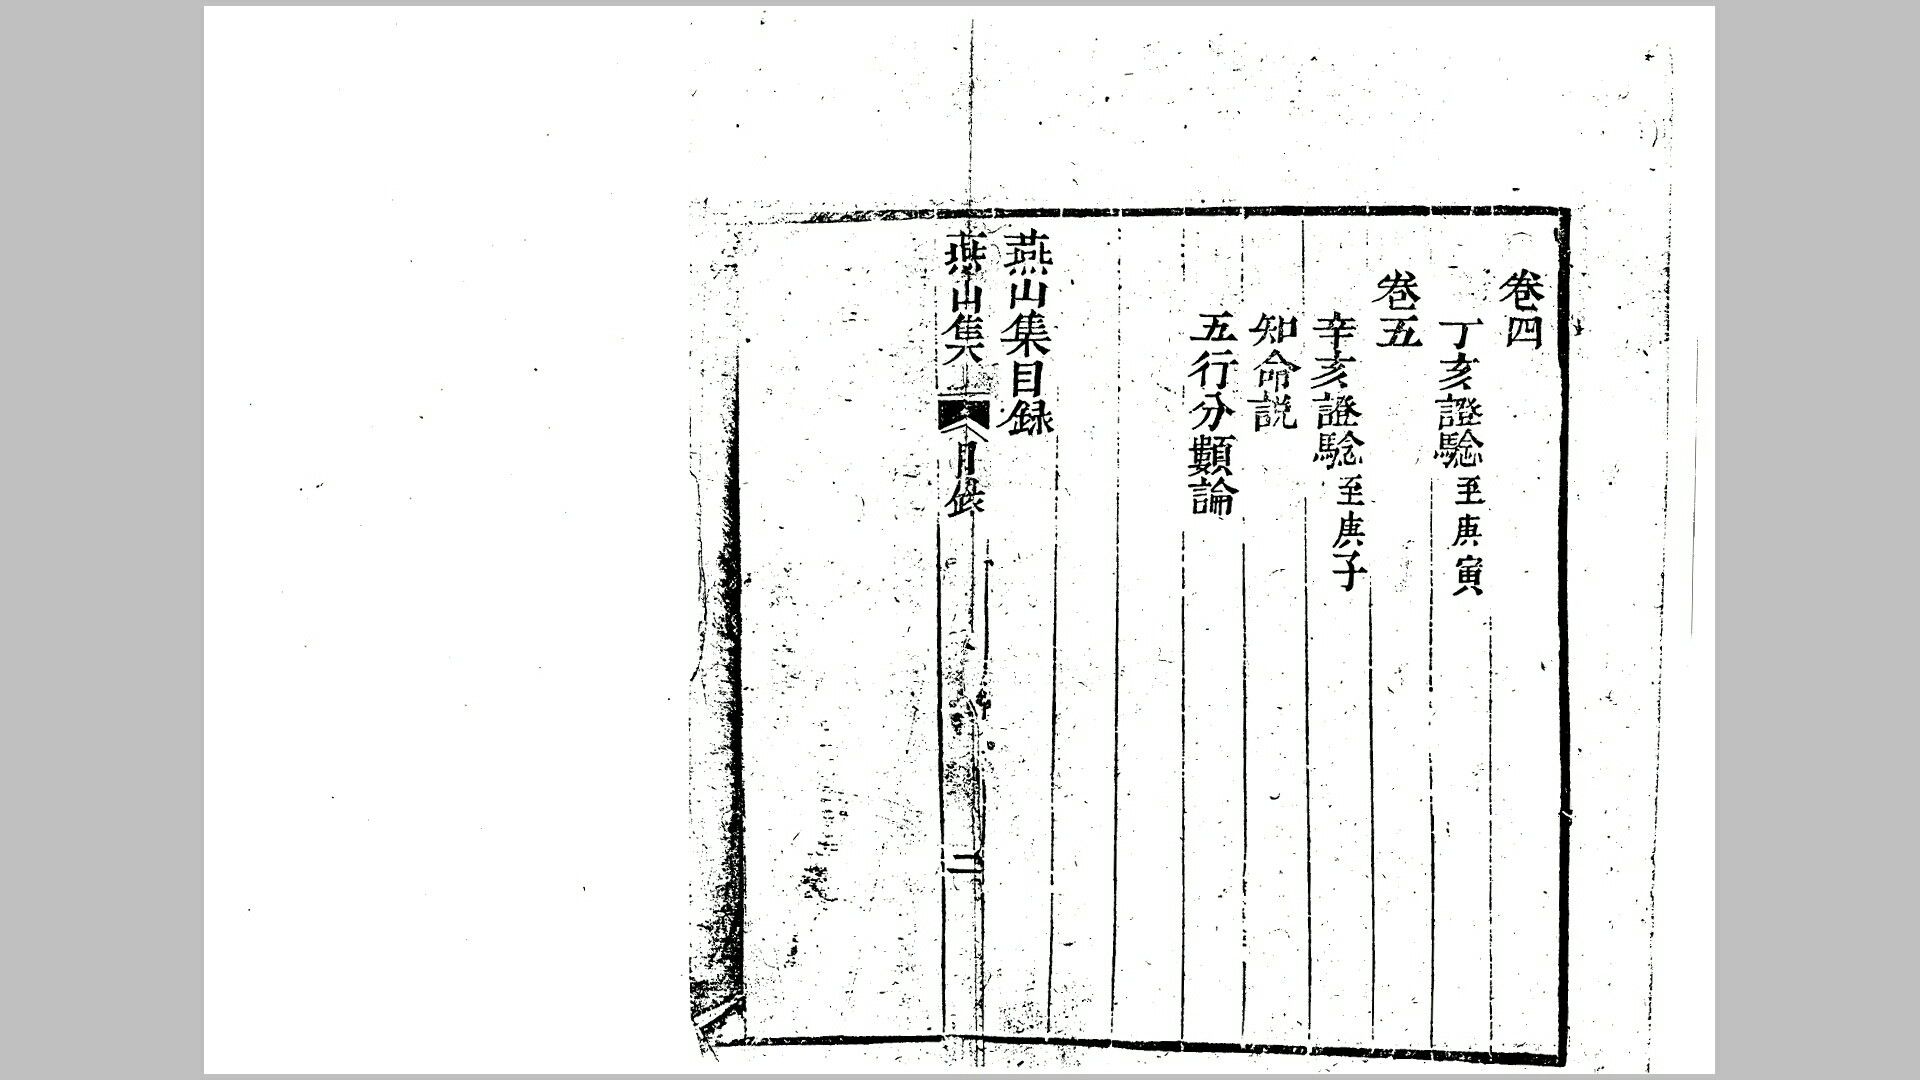 卷四
丁亥證驗至庚寅
卷五
辛亥證驗至庚子
知命説
五行分類論
燕山集目録
燕山集
目錄
二